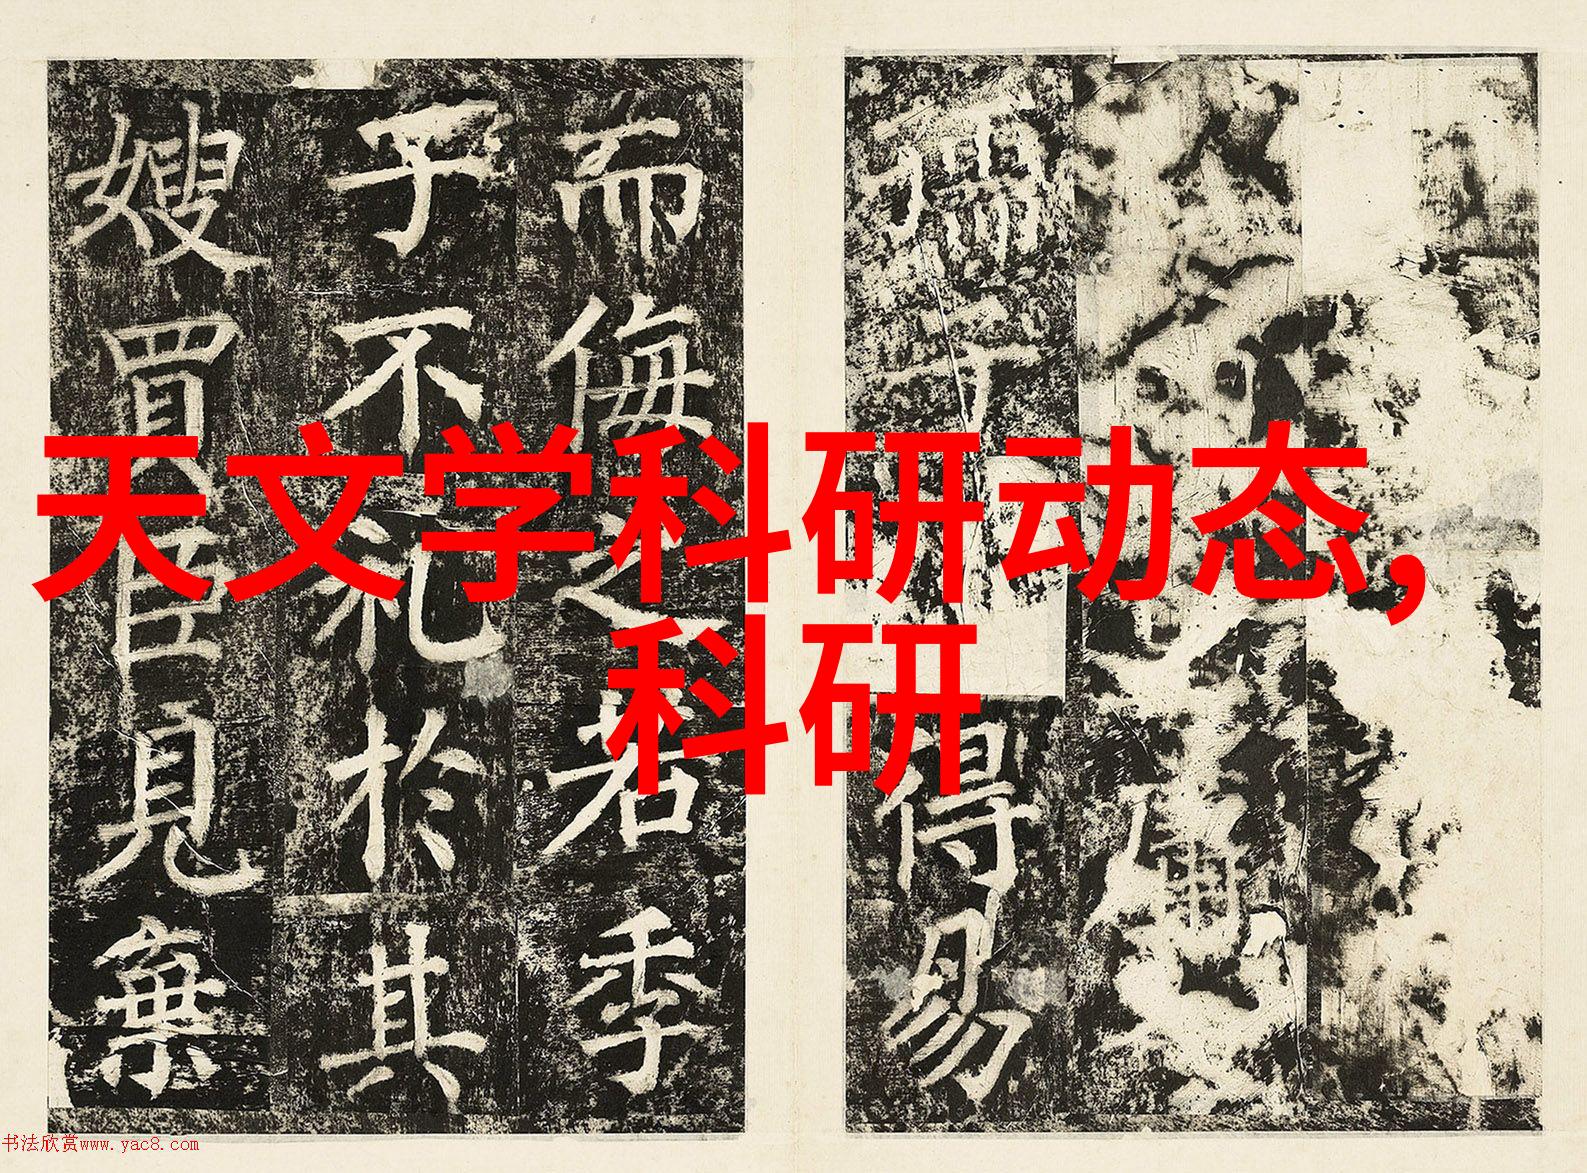 天文学科研动态,
科研
得易
而侮之若季
子不礼於其
嫂買臣見棄
书法欣赏www.yac8.com